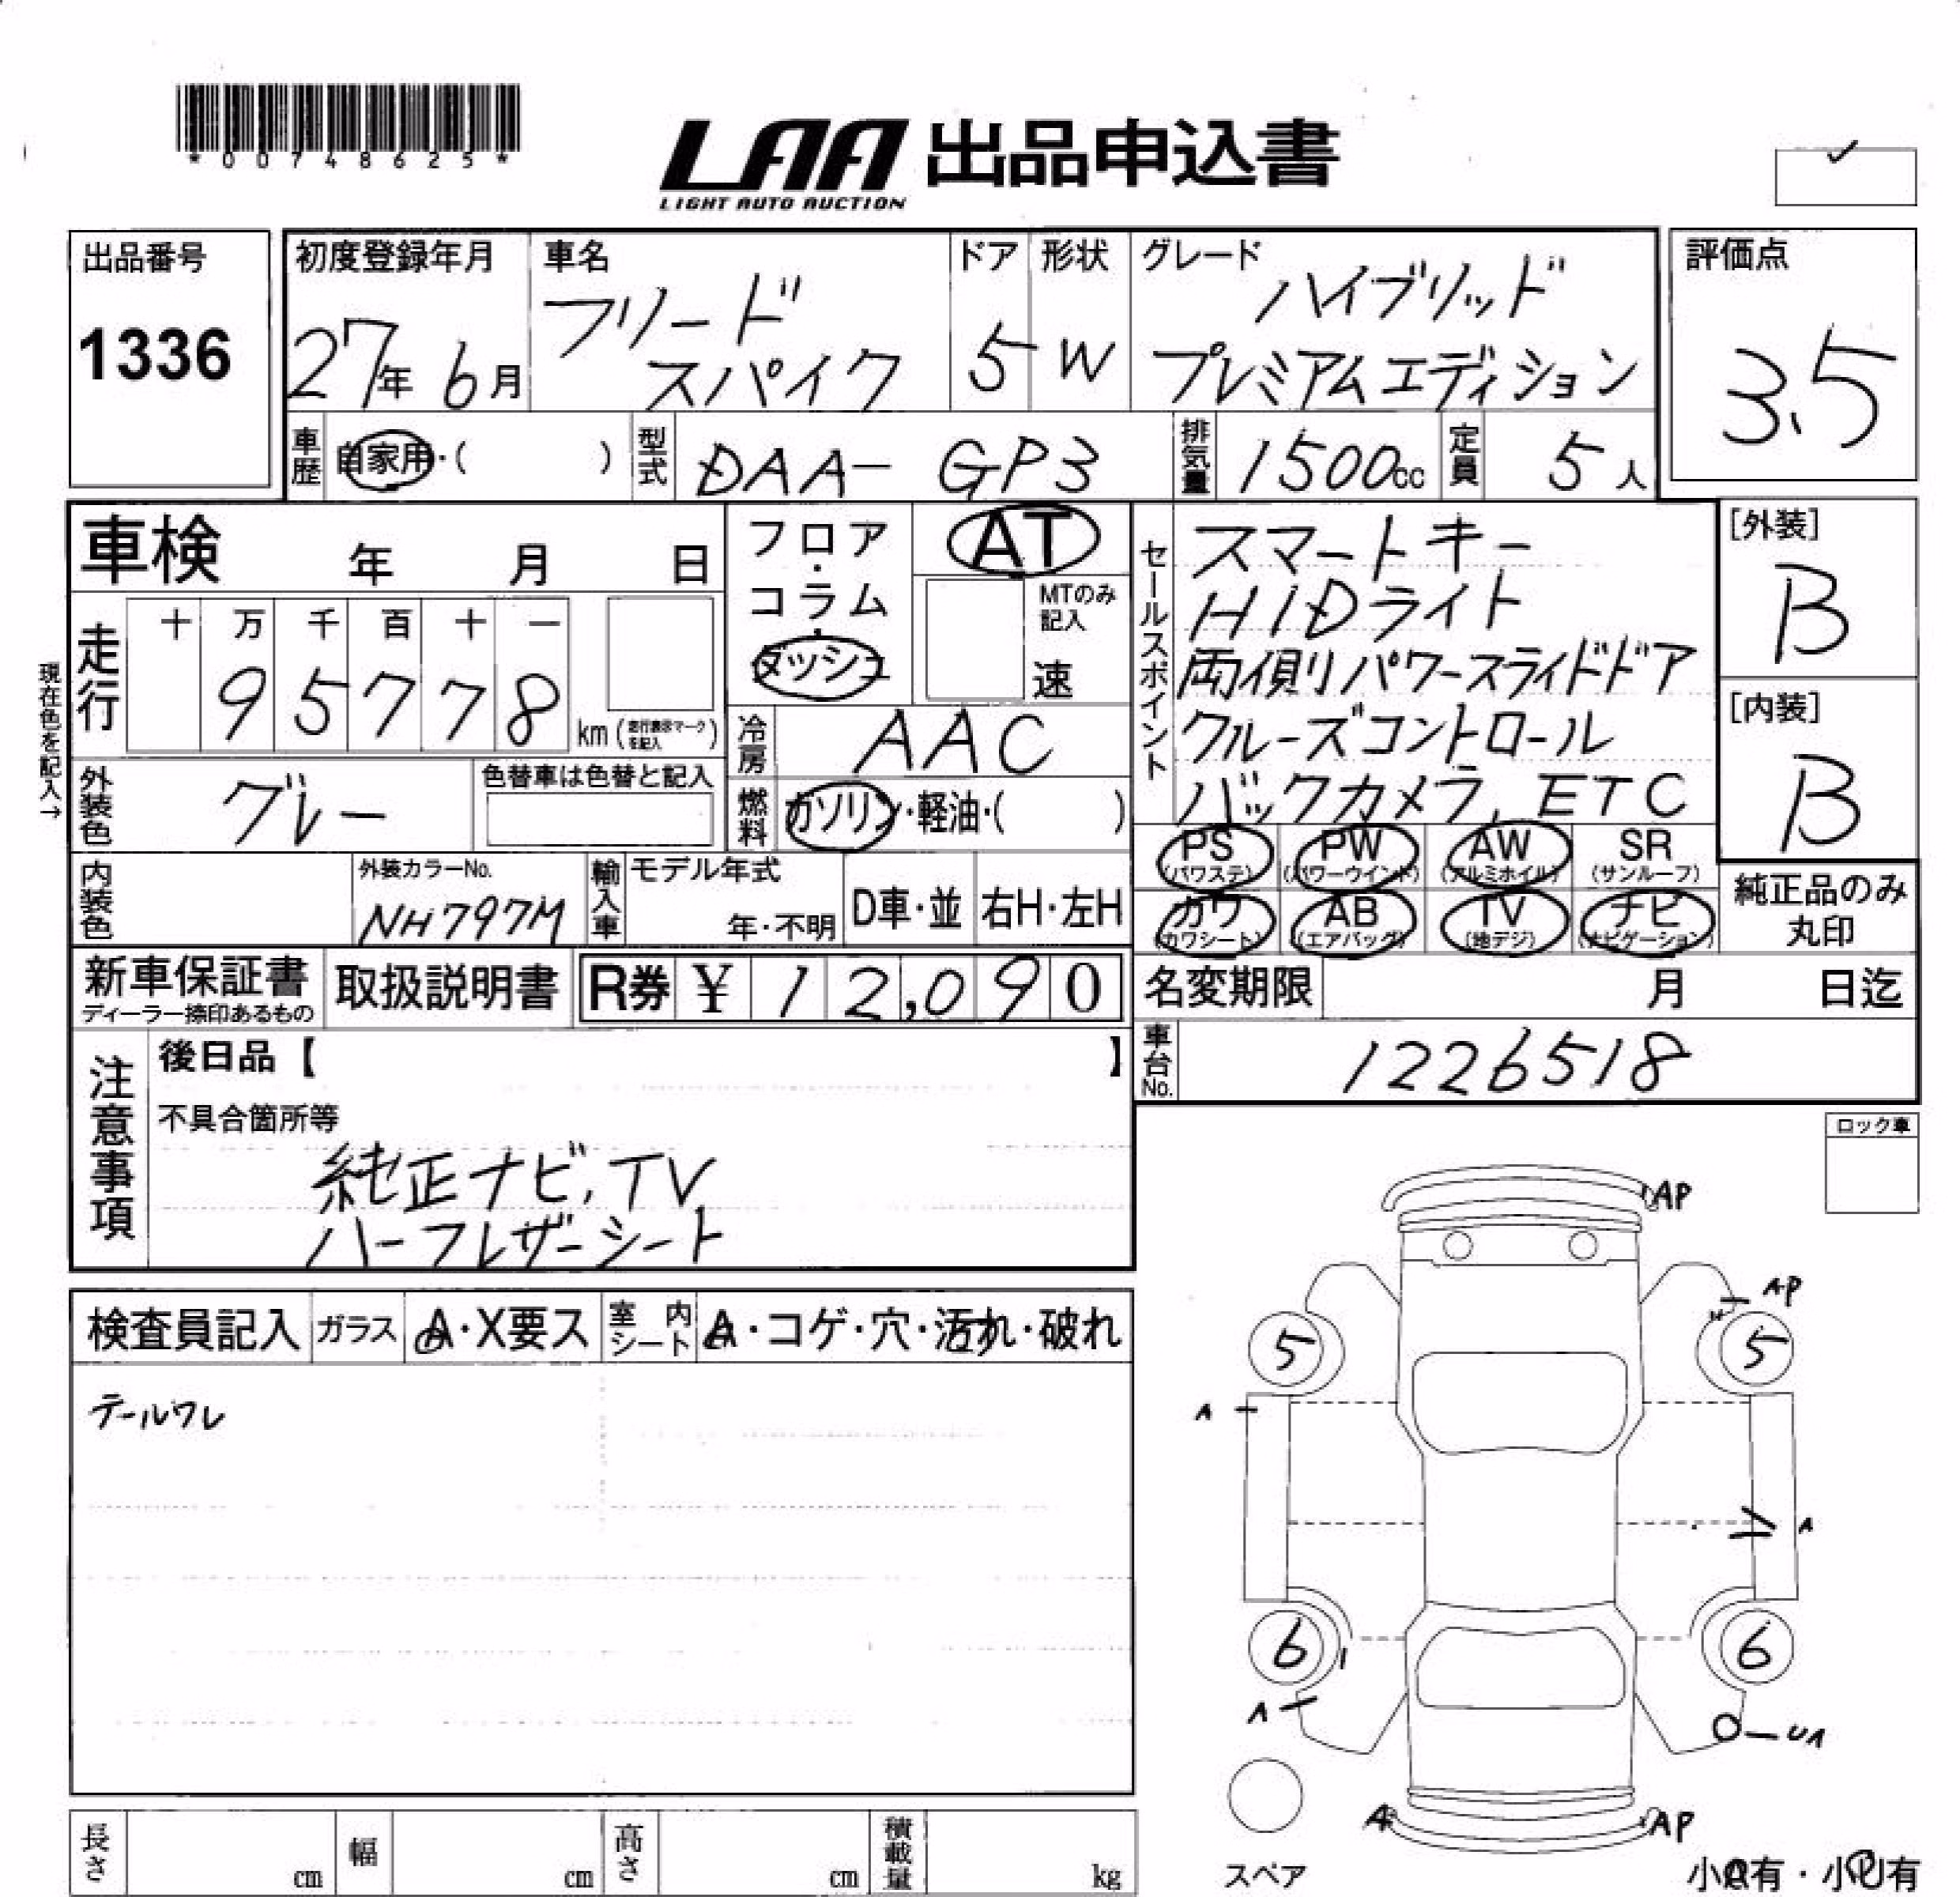 *00748625*
LAA 出品申込書
LIGHT AUTO AUCTION
出品番号
1336
初度登録年月
27年 6月
車名
フリード
スパイク
ドア
5
形状
W
グレード
ハイブリッド
プレミアムエディション
評価点
3.5
車歴
自家用・( )
型式
DAA- GP3
排気量
1500cc
定員
5人
車検 年 月 日
フロア・コラム・ダッシュ
AT
MTのみ記入
速
セールスポイント
スマートキー
HIDライト
両側パワースライドドア
クルーズコントロール
バックカメラ, ETC
[外装]
B
[内装]
B
現在色を記入→
走行
十 万 千 百 十 一
9 5 7 7 8
km (走行表示マークを記入)
冷房
AAC
外装色
グレー
色替車は色替と記入
燃料
ガソリン・軽油・( )
PS (パワステ)
PW (パワーウインド)
AW (アルミホイル)
SR (サンルーフ)
カワ (カワシート)
AB (エアバッグ)
TV (地デジ)
ナビ (ナビゲーション)
純正品のみ
丸印
内装色
外装カラーNo.
NH797M
輸入車
モデル年式
年・不明
D車・並
右H・左H
新車保証書
ディーラー捺印あるもの
取扱説明書
R券 ¥ 12,090
名変期限 月 日迄
車台No.
1226518
注意事項
後日品【 】
不具合箇所等
純正ナビ, TV
ハーフレザーシート
ロック車
検査員記入
ガラス
A・X要ス
室内シート
A・コゲ・穴・汚れ・破れ
テールワレ
AP
AP
5
5
A
A
6
6
A
UA
A
AP
スペア
小A有・小U有
長さ cm
幅 cm
高さ cm
積載量 kg